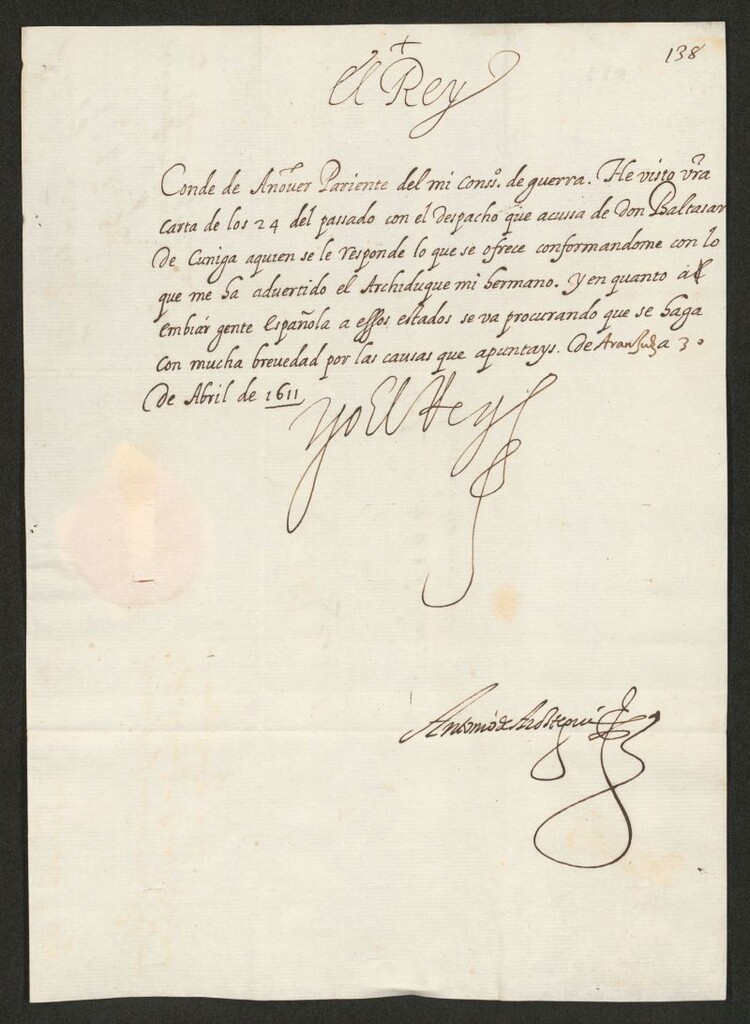 138
+
El Rey
Conde de Añover Pariente del mi consº. de guerra. He visto vra
carta de los 24 del passado con el despacho que acussa de Don Baltasar
de Cuniga aquien se le responde lo que se ofrece conformandome con lo
que me ha advertido el Archiduque mi hermano. y en quanto a
embiar gente Española a essos estados se va procurando que se haga
con mucha brevedad por las causas que apuntays. de a 30
de Abril de 1611
Yo El Rey
Antonio de Aroztegui